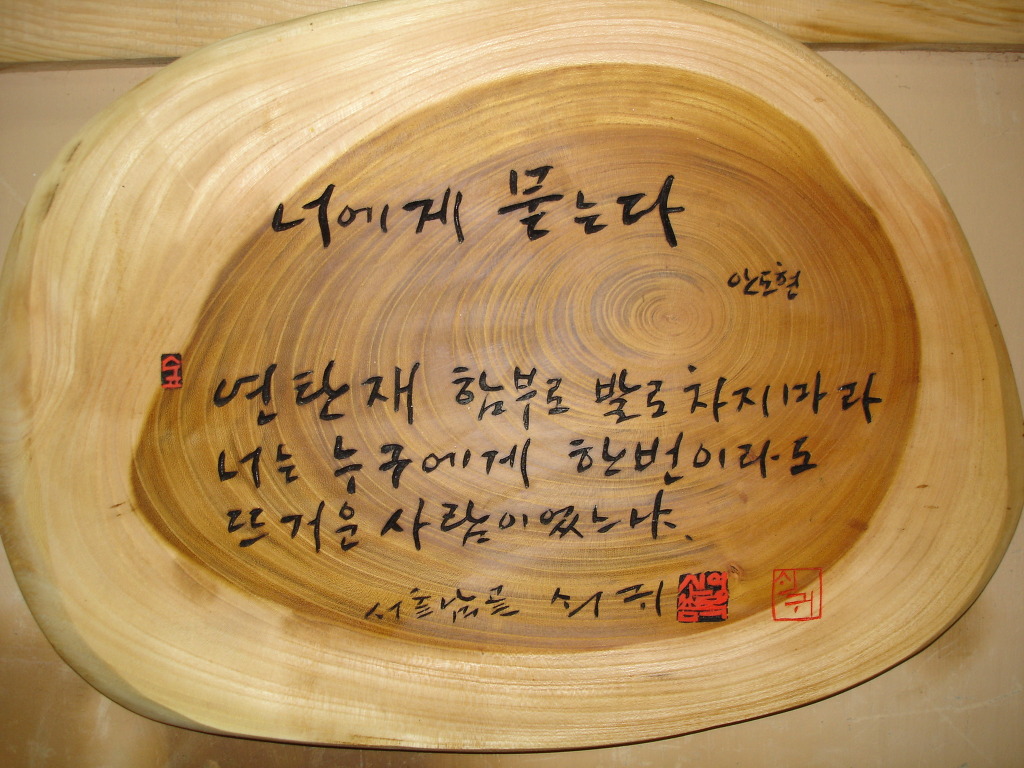 너에게 묻는다
안도현
연탄재 함부로 발로 차지마라
너는 누구에게 한번이라도
뜨거운 사람이었느냐.
쇠귀